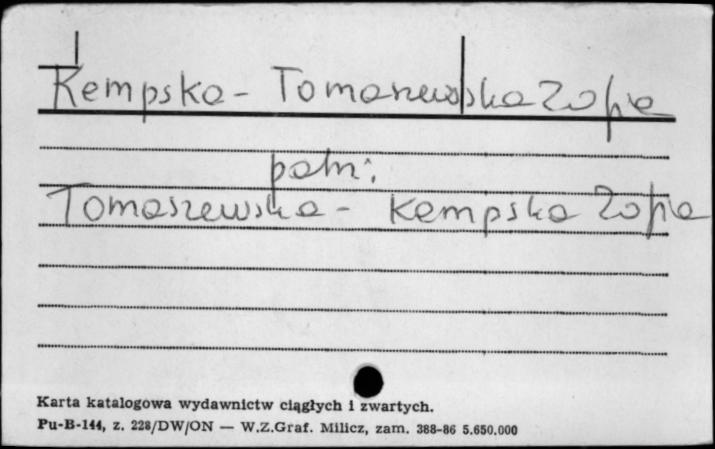 Kempska - Tomaszewska Zofia
patrz:
Tomaszewska - Kempska Zofia
Karta katalogowa wydawnictw ciągłych i zwartych.
Pu-B-144, z. 228/DW/ON — W.Z.Graf. Milicz, zam. 388-86 5.650.000